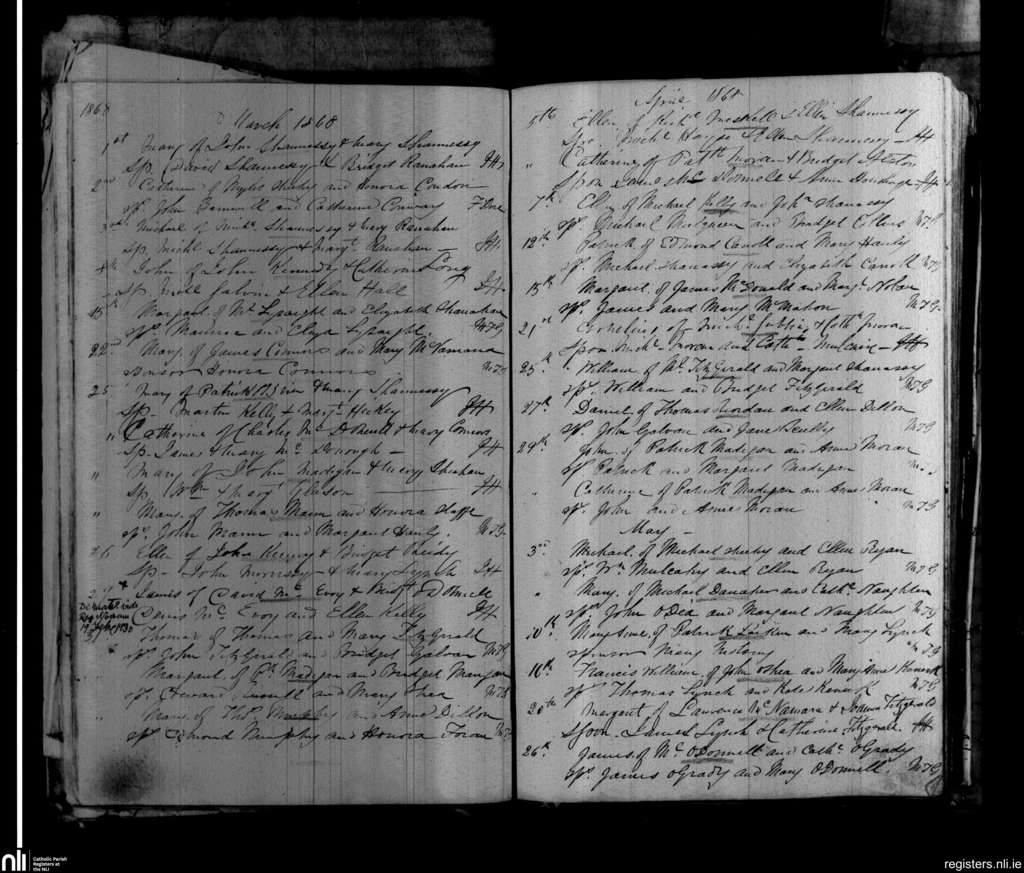 1868
March 1868
1st Mary of John Shaunessy & Mary Shaunessy
Sp. David Shaunessy & Bridget Ranahan JH
2nd Catherine of Myles Sheehy and Honora Condon
Sp. John and Catherine Conway
3rd Michael of Michl Shaunessy & Mary Ranahan
Sp. Michl Shaunessy & Margt Ranahan — JH
8th John of John Kennedy & Catherine Long
Sp. Galvin & Ellen Hall JH
15th Margaret of Lysaght and Elizabeth Shanahan
Sps. Maurice and Eliza Lysaght. M.T.G
22nd Mary. of James Connors and Mary McNamara
Sponsor Honora Connors M.T.G
25 Mary of Patrick & Mary Shaunessy
Sp- Martin Kelly & Margt Hickey JH
" Catherine of Charles Mc Donnell & Mary Connors
Sp- James & Mary Mc Donough — JH
" Mary of John Madigan & Mary Sheehan
Sp. Wm & Mary Gleeson JH
" Mary. of Thomas Mann and Honora
Sps. John Mann and Margaret Hanly. M.T.G
26 Ellen of John & Bridget
Sp- John Morrissy & Mary Lynch JH
27 James of David Mc Evoy & Bridt O'Donnell
Denis Mc Evoy and Ellen Kelly JH
1930
Thomas of Thomas and Mary FitzGerald
Sps. John FitzGerald and Bridget Galvan M.T.G
" Margaret. of Madigan and Bridget Mangan
Sps. Edward and Mary Shea M.T.G
" Mary. of Thos. Murphy and Anne Dillon
Sps. Edmond Murphy and Honora Foran M.T.G
April 1868
5th Ellen of Richd Meskell & Ellen Shaunessy
Spon Michl Hayes & Ellen Shaunessy — JH
" Catherine of Patk Moran & Bridget
Spon James Mc Donnell & Anne — JH
7th Ellen. of Michael Kelly and Joha Shanassy
Sps. Michael and Bridget Collins M.T.G
12th Patrick. of Edmond Carroll and Mary Hanly
Sps. Michael Shanassy and Elizabeth Carroll M.T.G
15th Margaret. of James McDonald and Margt Nolan
Sps. James and Mary McMahon M.T.G
21st Cornelius of Michl & Cathe Moran
Spon Michl Moran and Cathe Mulcaire — JH
25th William of Ml. FitzGerald and Margaret Shanassy
Sps. William and Bridget Fitzgerald M.T.G
27th Daniel. of Thomas Riordan and Ellen Dillon
Sps. John Galvan and Jane Scully M.T.G
29th John. of Patrick Madigan and Anne Moran
Sps Patrick and Margaret Madigan M. "
" Catherine of Patrick Madigan and Anne Moran
Sps. John and Agnes Moran " M.T.G
May —
3rd Michael. of Michael Sheehy and Ellen Ryan
Sps. Wm Mulcahy and Ellen Ryan M.T.G
" Mary. of Michael Danaher and Cathe Naughten
Sps John O'Dea and Margaret Naughten M.T.G
10th Mary Anne. of Patrick Larkin and Mary Lynch
Sponsor Mary M.T.G
16th Francis William. of John Shea and Mary Anne
Sps Thomas Lynch and Kate M.T.G
20th Margaret of Lawrence McNamara & Johanna Fitzgerald
Spon. James Lynch & Catherine Fitzgerald JH
26th James. of Ml. O'Donnell and Cathe O'Grady
Sps. James O'Grady and Mary O'Donnell. M.T.G
nli Catholic Parish
Registers at
the NLI
registers.nli.ie